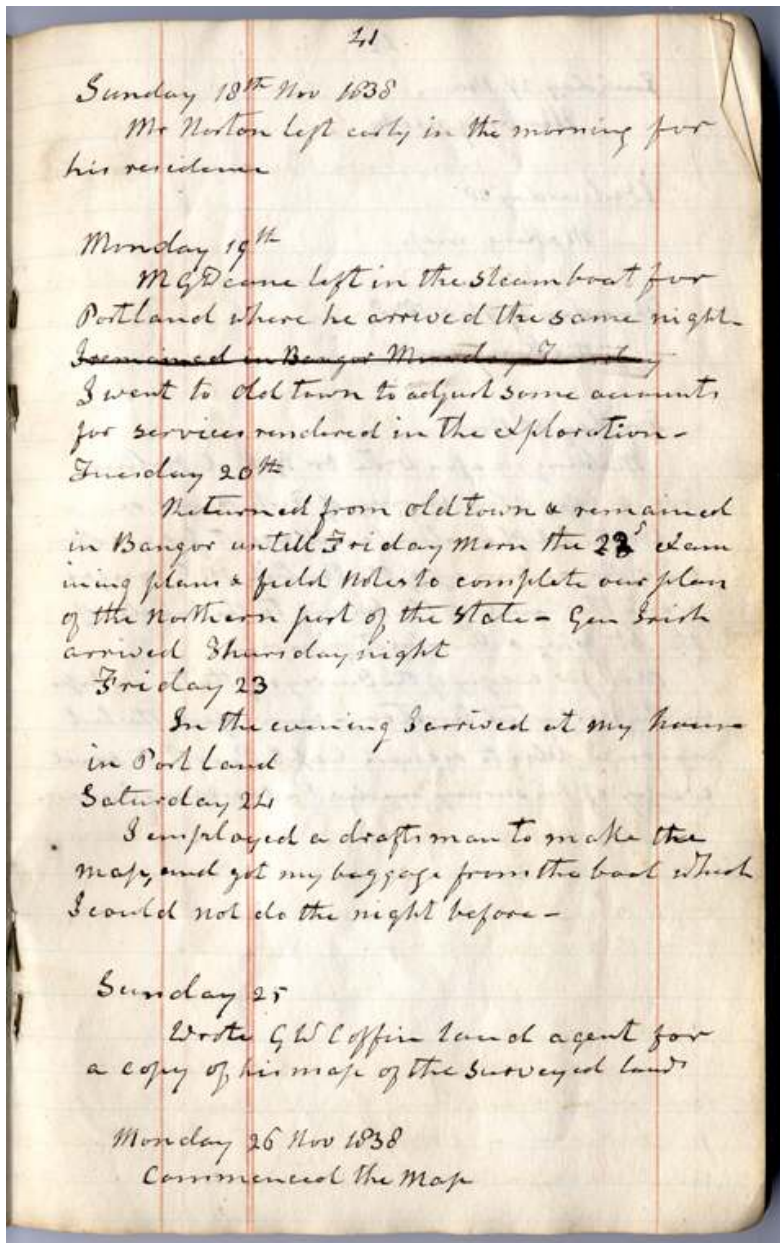 41
Sunday 18th Nov 1838
Mr Norton left early in the morning for
his residence
Monday 19th
M G Deane left in the steam boat for
Portland where he arrived the same night -
I remained in Bangor Monday Tuesday
I went to old town to adjust some accounts
for services rendered in the exploration -
Tuesday 20th
Returned from old town & remained
in Bangor untill Friday Morn the 23 exam
ining plans & field Notes to complete our plan
of the Northern part of the State - Gen Irish
arrived Thursday night
Friday 23
In the evening I arrived at my house
in Portland
Saturday 24
I employed a draftsman to make the
map, and got my baggage from the boat which
I could not do the night before -
Sunday 25
Wrote G W Coffin land agent for
a copy of his map of the surveyed lands
Monday 26 Nov 1838
Commenced the Map